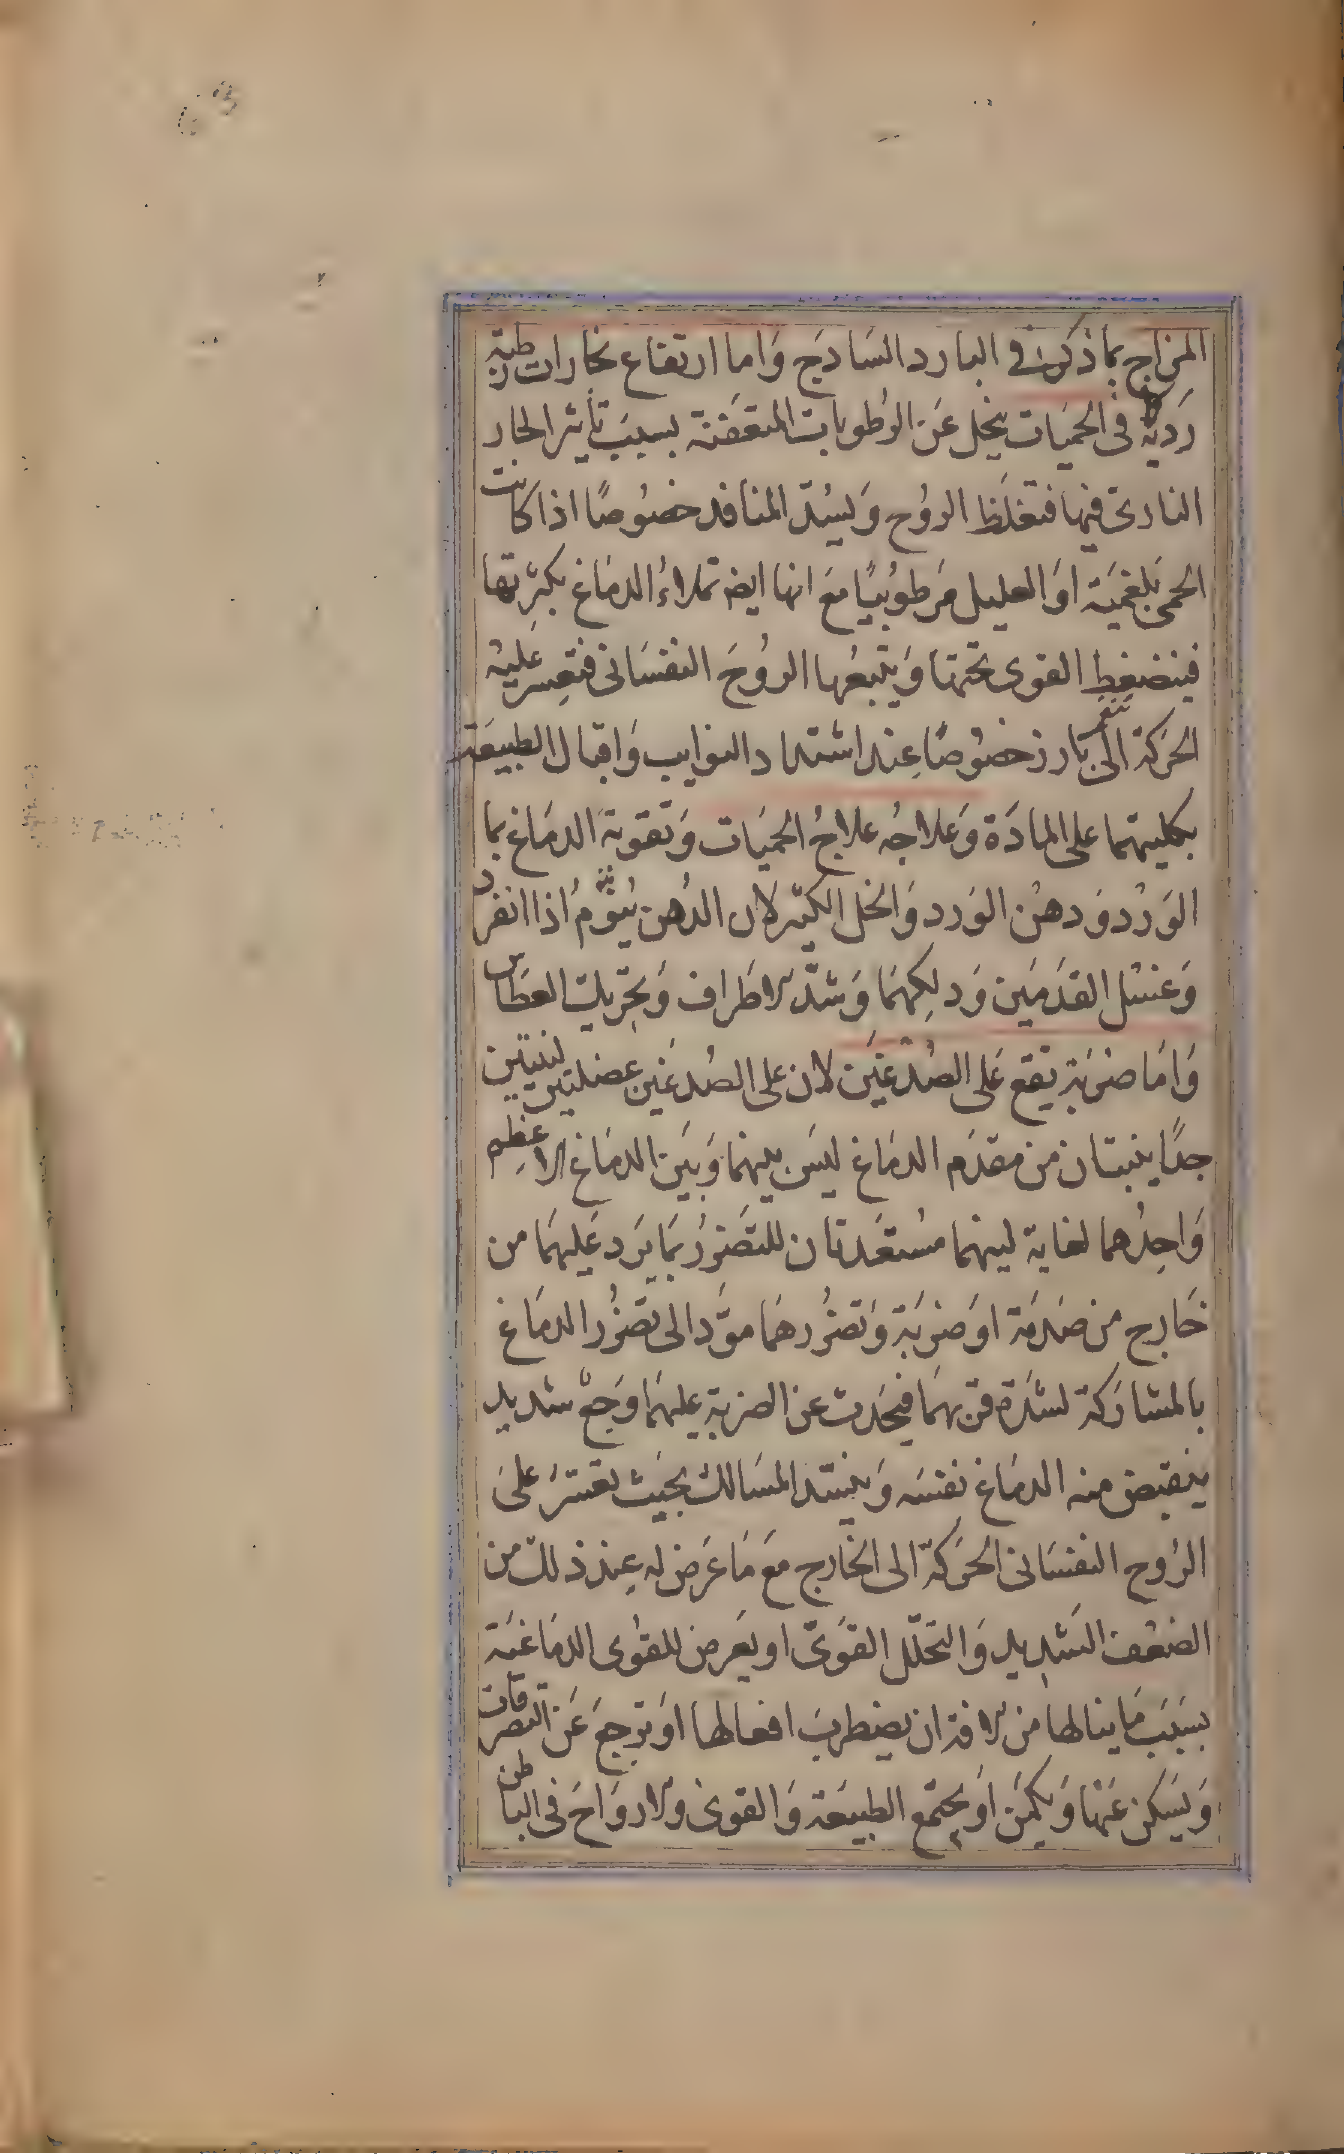 المزاج بما ذكرنا في البارد الساذج وَاما ارتفاع بخارات رطبة
رَديّة فى الحميَات يتحل عَن الرُطوبات المتعفّنة بسبَب تأثير الحار
النارى فيها فتغلَظ الرُوح وَيسُدّ المنافذ خصُوصًا اذا كانت
الحمى بَلغميَة اوَ العليل مَرطوُبيًا مَع انها ايضا تملاءُ الدمَاغ بكثرتها
فينضغِط القوى تحتها وَيتبعُها الروُحَ النفسَانى فتعِسر عليه
الحَركة الى بارز خصُوصًا عِند اشتداد النوايب وَاقبال الطبيعَة
بكليتهما على المادَة وَعلاجُه علاجُ الحميَات وَتقوية الدمَاغ بما
الوَرُد وَدهُن الوَرد وَالخل الكثير لان الدُهن يُنوّمُ اذا انفرد
وَغسْل القدَمَين وَدلكِهمَا وَشدّ الاطَراف وَتحرّيك العطَاس
وَامَا ضربَة يقع عَلى الصُدْغيَن لان على الصُدغَين عضلتين لينتين
جدًا ينبتان من مقدَم الدمَاغ ليسَ بينهما وَبيَن الدمَاغ الا عظم
وَاحِدُ هما لغاية لينهما مسُتعَدتان للتضَررُ بمَا يَرَد عَليهمَا من
خَارج من صَدمَة اوَ ضربَة وَتضرُرهمَا مؤَد الى تضرُر الدمَاغ
بالمشارَكة لشدَة قربهمَا فيحَدث عن الضربة عليهمَا وَجعْ شديد
ينقبض منه الدمَاغ نفسَه وَينسَد المسَالك بحيَث تعسّر عَلىَ
الرُوح النفسَانى الحَركةّ الى الخارج مَع مَا عَرَض له عِند ذلك من
الضعُف الشَديد وَالتحلّل القوَىّ او يَعرض للقوُى الدمَاغيَة
بسَبَب مَا ينالها من الافة ان يضطربَ افعالها اوَ ترجعَ عَن التصرفات
وَيسَكن عَنهْا وَيكمَن اوَ يجتمع الطبيعَة وَالقوى وَالاروَاحَ فى الباطن